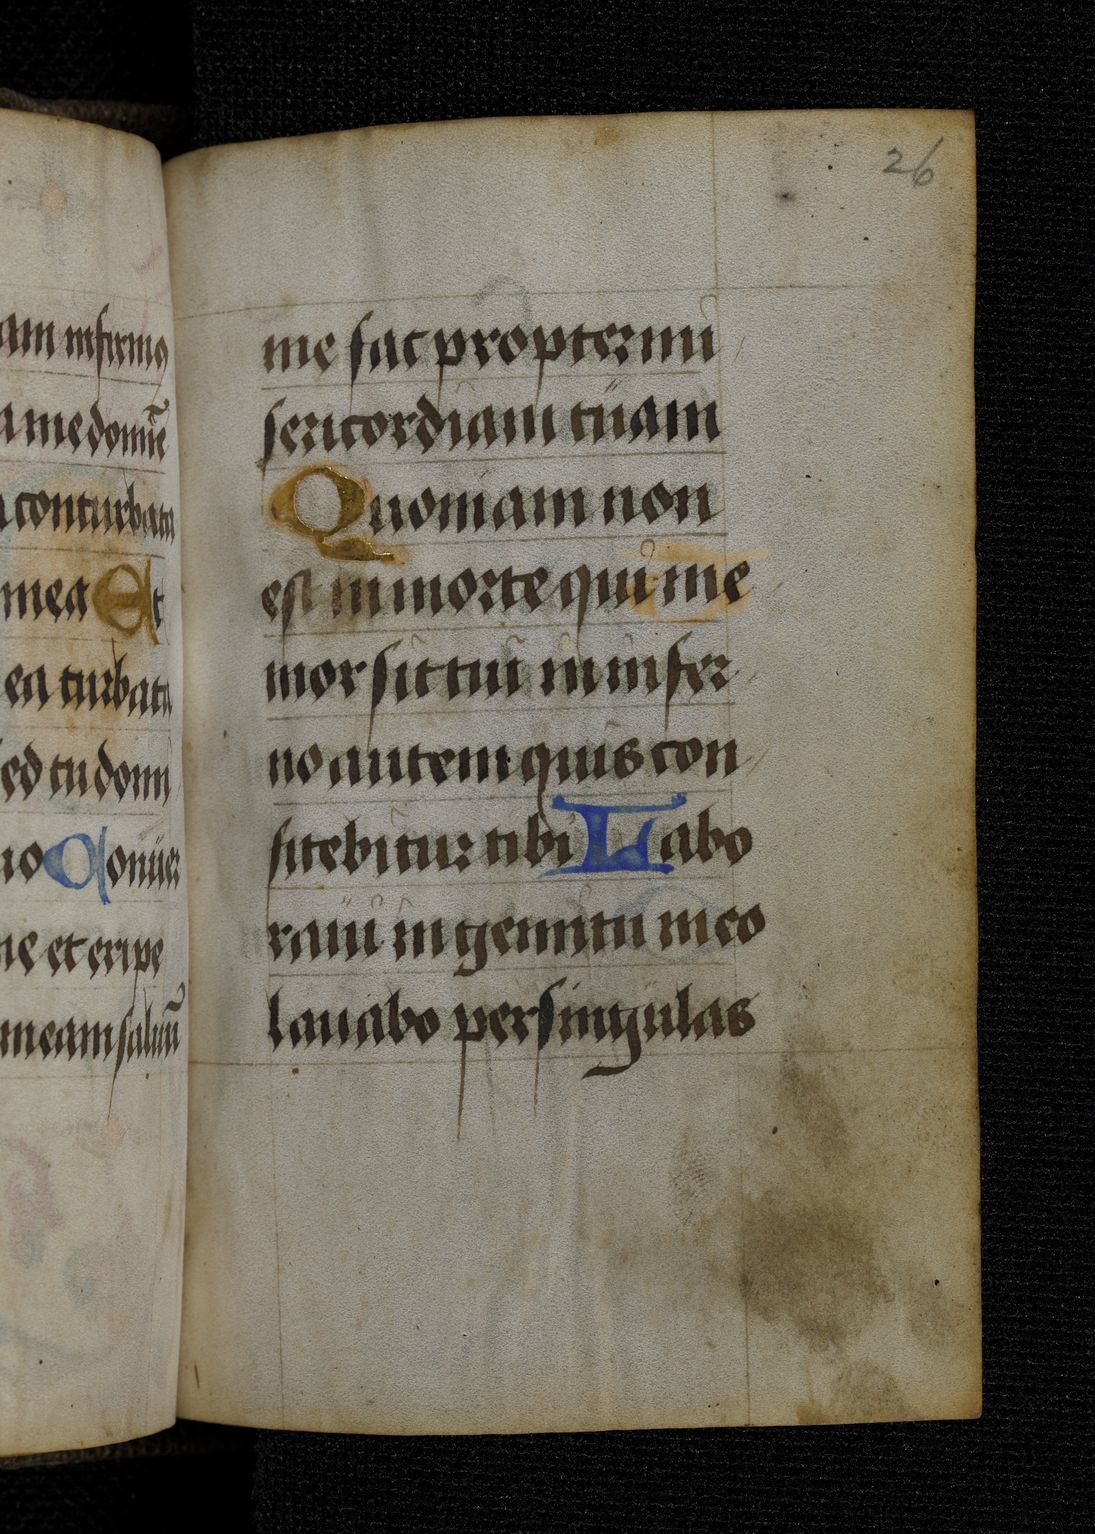 am infirmꝰ
a me domĩe
conturbata
mea Et
ea turbata
sed tu domi
Conuer
et eripe
meam saluũ
26
me fac propter mi
sericordiam tuam
Quoniam non
est in morte qui me
mor sit tui in infer
no autem quis con
fitebitur tibi Labo
raui in gemitu meo
lauabo per singulas